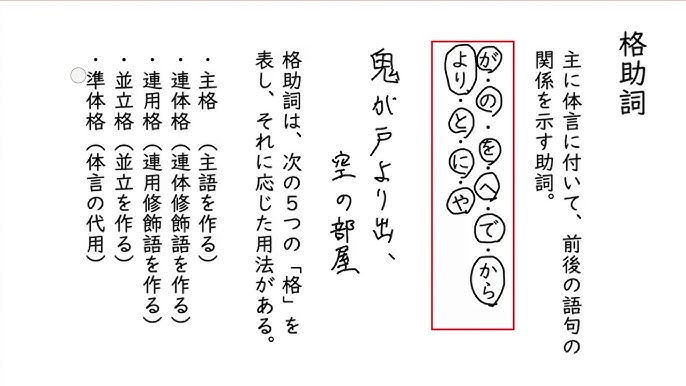 格助詞
主に体言に付いて、前後の語句の
関係を示す助詞。
が・の・を・へ・で・から
より・と・に・や
鬼が戸より出、
空の部屋
格助詞は、次の5つの「格」を
表し、それに応じた用法がある。
・主格（主語を作る）
・連体格（連体修飾語を作る）
・連用格（連用修飾語を作る）
・並立格（並立を作る）
・準体格（体言の代用）